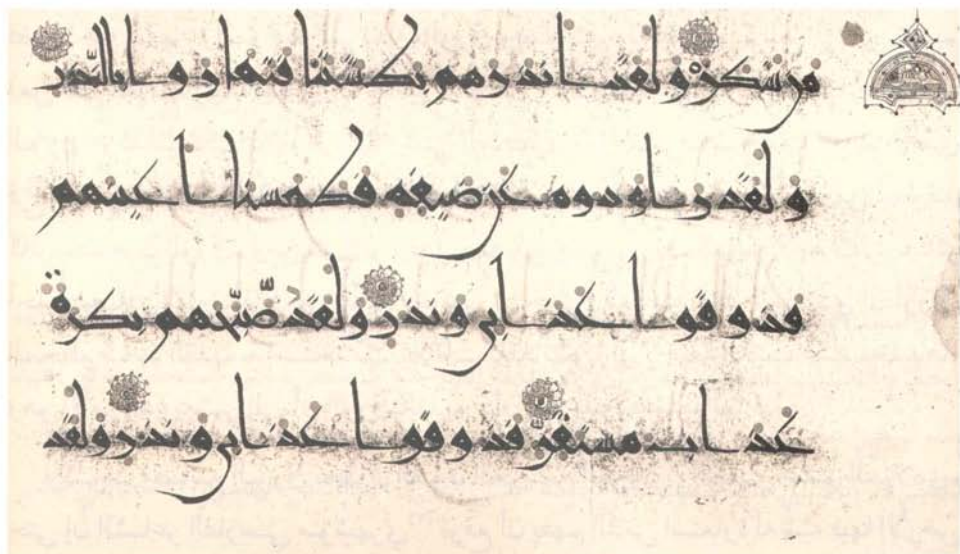 من شكر ولقد انذرهم بطشتنا فتماروا بالنذر
ولقد راودوه عن ضيفه فطمسنا اعينهم
فذوقوا عذابي ونذر ولقد صبّحهم بكرة
عذاب مستقرّ فذوقوا عذابي ونذر ولقد